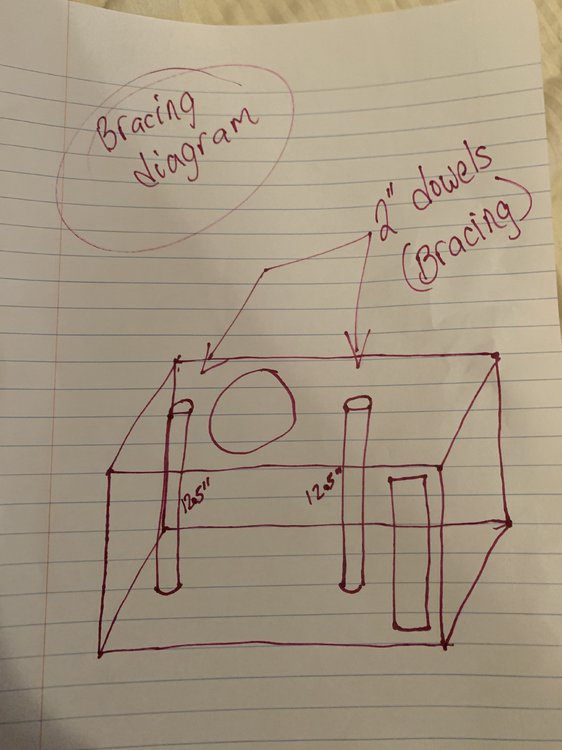 Bracing
diagram
2" dowels
(Bracing)
12.5"
12.5"